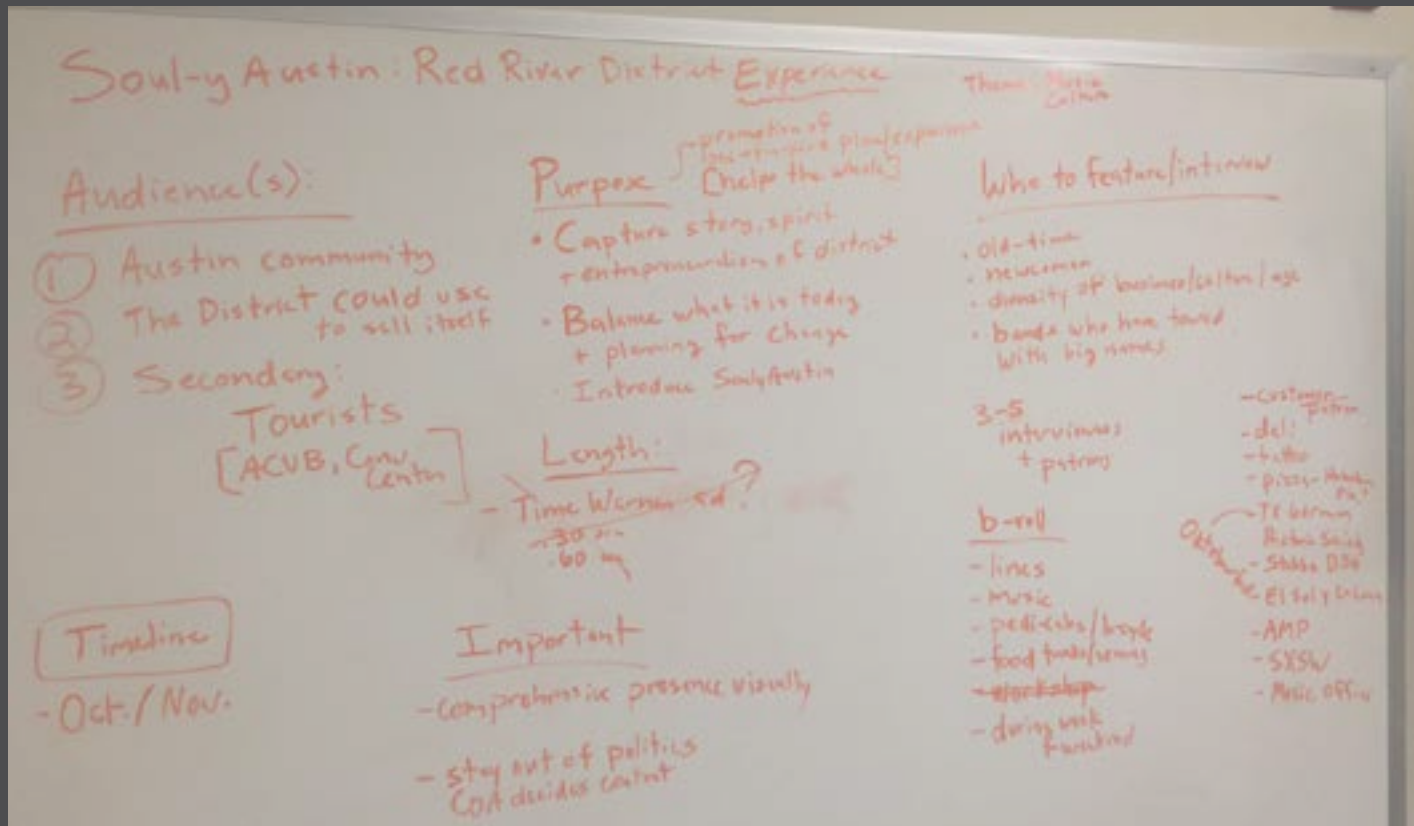 Soul-y Austin: Red River District Experience
Theme: Music
Culture
Audience(s):
① Austin community
② The District could use
to sell itself
③ Secondary:
Tourists
[ACVB, Conv.
Center]
Timeline
- Oct./Nov.
Purpose
promotion of
[helps the whole]
• Capture story, spirit
+ entrepreneurs of district
• Balance what it is today
+ planning for change
• Introduce SoulyAustin
Length:
- Time Warner ?
30
60
Important
- comprehensive presence visually
- stay out of politics
COA decides content
Who to feature/interview
• old-time
• newcomer
• diversity of business/culture/age
• bands who have toured
with big names
3-5
interviews
+ patrons
b-roll
- lines
- music
- pedi-cabs/bicycle
- food trucks/
- workshop
- during week
- customer-
patron
- deli
- tattoo
- pizza-
- Stubbs BBQ
- AMP
- SXSW
- Music Office